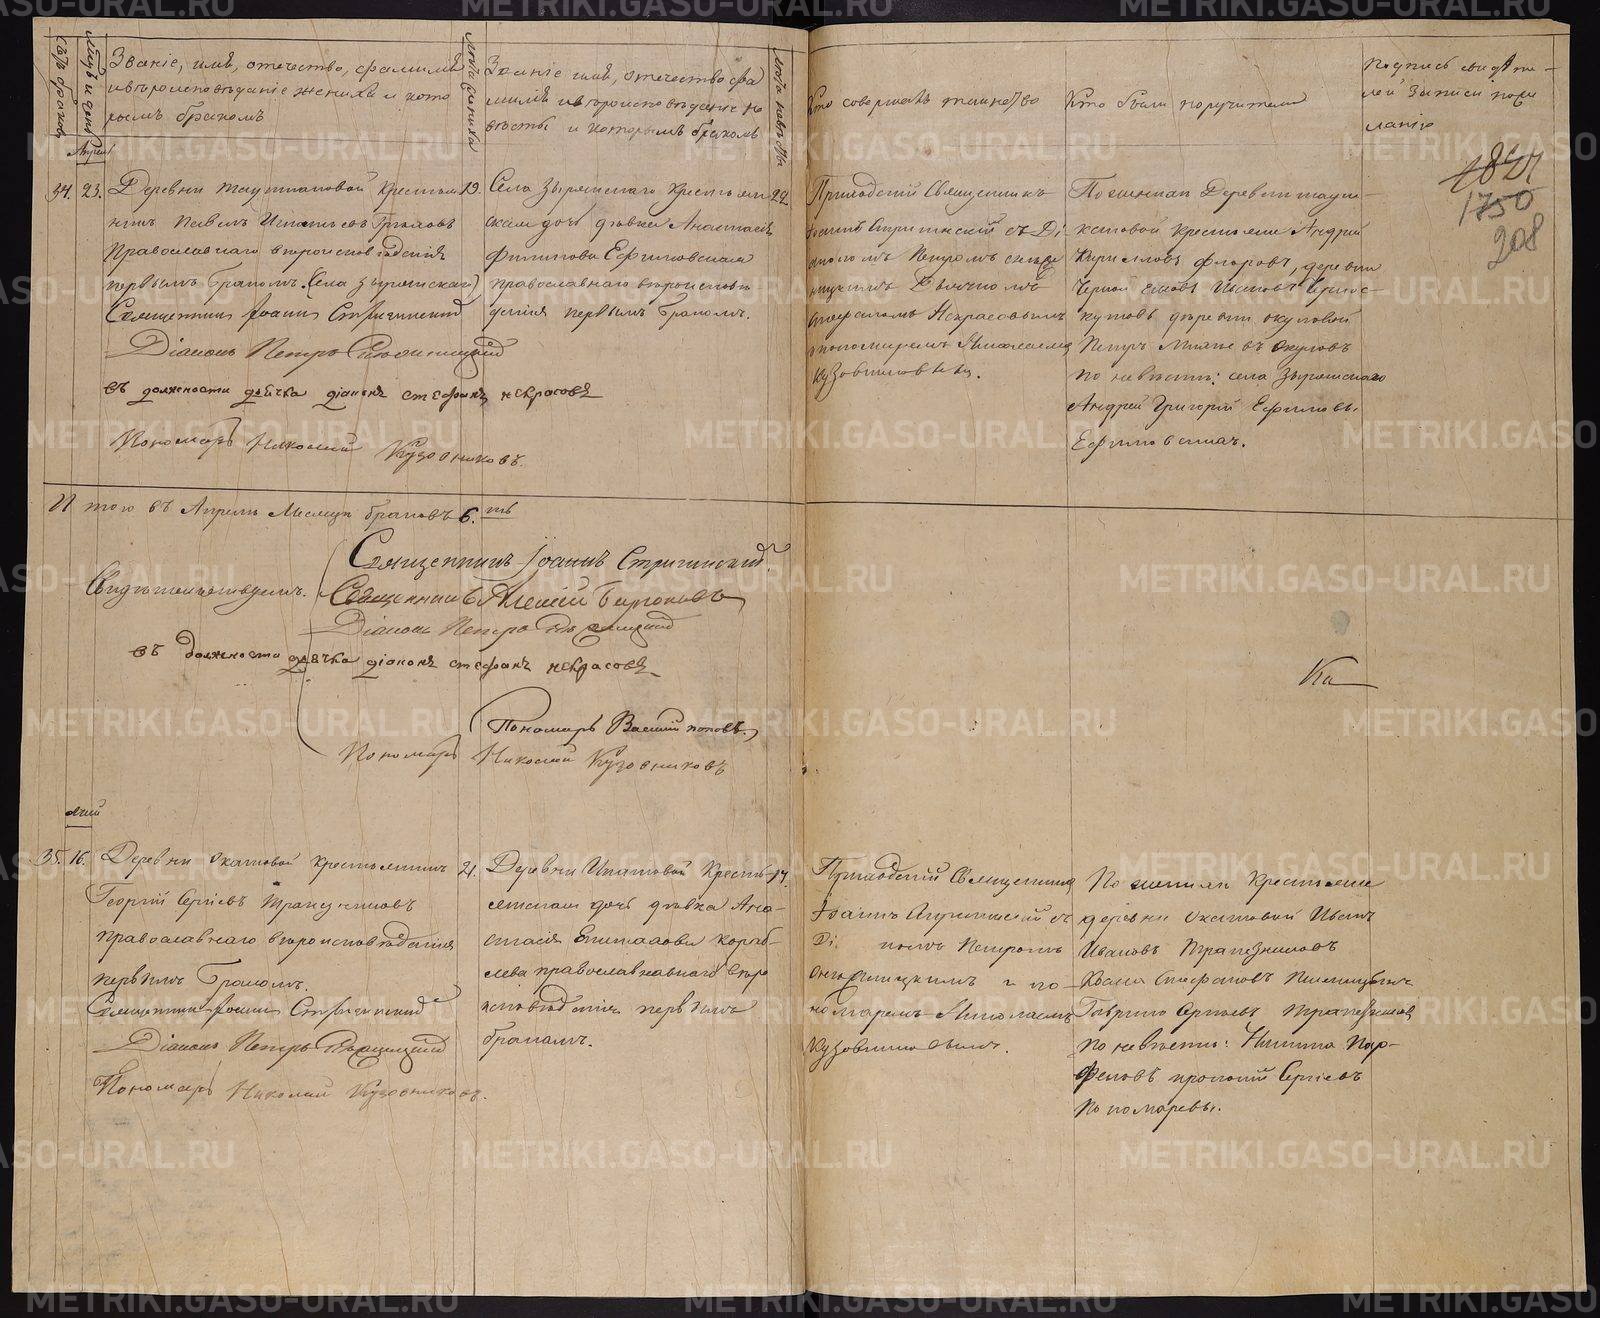 Счетъ браковъ
Мцъ и день
Званіе, имя, отечество, фамилія
и вѣроисповѣданіе жениха и кото
рымъ бракомъ
Лѣта жениха
Званіе имя, отечество фа
милія и вѣроисповѣданіе не
вѣсты и которымъ бракомъ
Лѣта невѣсты
Кто совершалъ таинство
Кто были поручители
Подпись свидѣте-
лей записи по же
ланію
Апрель
34. 23.
Деревни крестья
нинъ Павелъ
Православнаго вѣроисповѣданія
первымъ бракомъ. Села Зырянскаго
Священникъ Іоаннъ Стригинскій
Діаконъ Петръ
въ должности дьячка діаконъ стефанъ некрасовъ
Пономарь Николай Кузовниковъ.
19.
Села Зырянскаго крестьян
ская дочь дѣвка Анастасія
Филипова Ефимовская
православнаго вѣроиспов
данія первымъ бракомъ.
22.
Приходскій Священникъ
Іоаннъ Стригинскій съ Ді
акономъ Петромъ
Стефаномъ Некрасовымъ
пономаремъ Николаемъ
Кузовниковымъ.
По женихѣ Деревни
крестьяне Андрей
Кирилловъ Флоровъ, деревни
Черной Ивановъ
деревни окуловой
Петръ окуловъ
по невѣстѣ: села Зырянскаго
Андрей Григорій Ефимовъ
Ефимовскихъ.
1824
1750
208
Итого въ Апрель Месяцѣ браковъ 6. ть
Свидѣтельствуемъ.
Священникъ Іоаннъ Стригинскій
Священникъ Алексій
Діаконъ Петръ
въ должности дьячка діаконъ стефанъ некрасовъ
Пономарь Василій поповъ.
Пономарь Николай Кузовниковъ
Ка
Маій
35. 16.
Деревни Окатовой крестьянинъ
Георгій Сергіевъ Трапезниковъ
православнаго вѣроисповѣданія
первымъ бракомъ.
Священникъ Іоаннъ Стригинскій
Діаконъ Петръ
Пономарь Николай Кузовниковъ.
21.
Деревни Ипатовой Кресть
янская дочь дѣвка Ана-
стасія Корабе-
лева православнавнаго вѣро
исповѣданія первымъ
бракомъ.
17.
Приходскій Священникъ
Іоаннъ Стригинскій съ
Діакономъ Петромъ
и по
номаремъ Николаемъ
Кузовниковымъ.
По женихѣ крестьяне
деревни Окатовой Иванъ
Ивановъ Трапезниковъ
Стефановъ
Гаврило Сергіевъ Трапезниковъ
по невѣстѣ: Никита Пар-
феновъ Сергіевъ
Пономаревы.